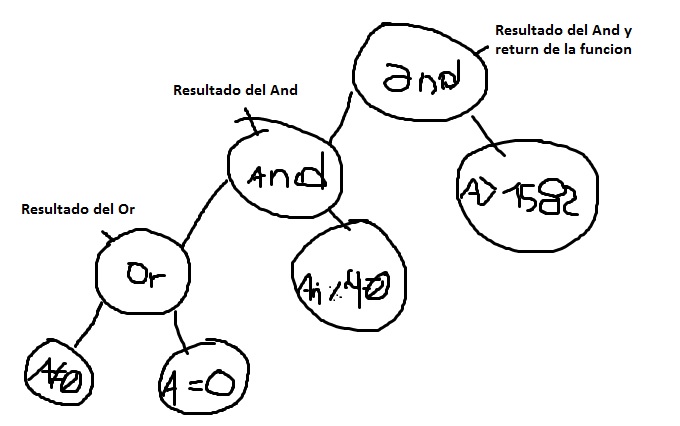 Resultado del And y
return de la funcion
and
Resultado del And
And
A > 1582
Resultado del Or
Or
A = 0